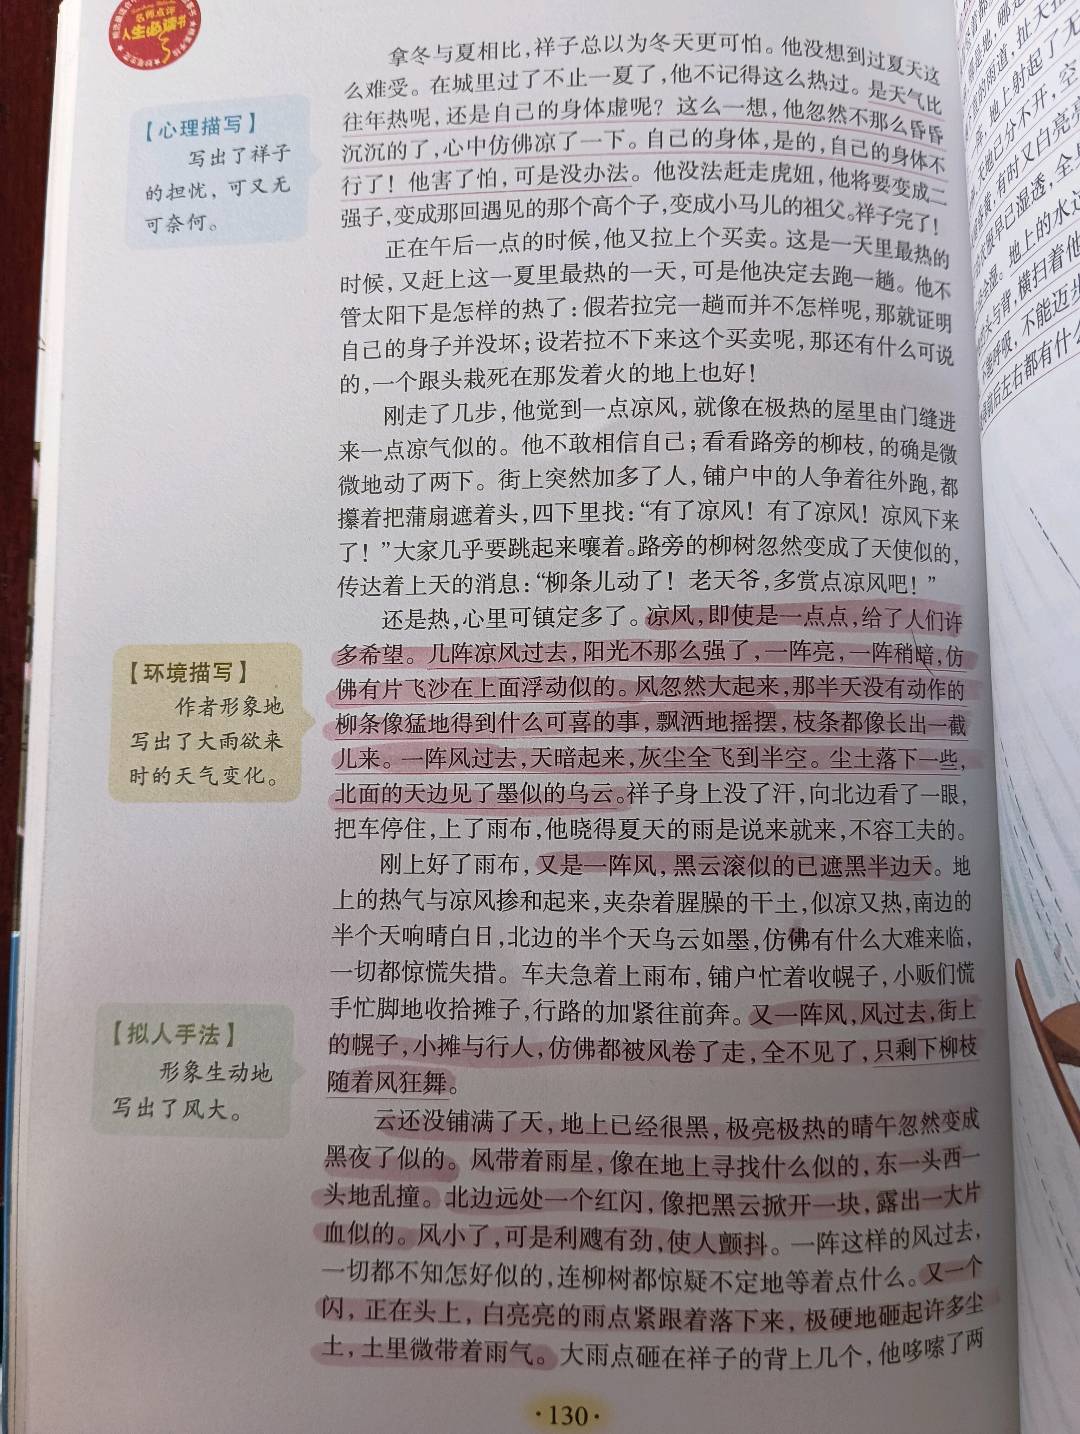 名师点评
人生必读书
拿冬与夏相比，祥子总以为冬天更可怕。他没想到过夏天这
么难受。在城里过了不止一夏了，他不记得这么热过。是天气比
往年热呢，还是自己的身体虚呢？这么一想，他忽然不那么昏昏
沉沉的了，心中仿佛凉了一下。自己的身体，是的，自己的身体不
行了！他害了怕，可是没办法。他没法赶走虎妞，他将要变成二
强子，变成那回遇见的那个高个子，变成小马儿的祖父。祥子完了！
【心理描写】
写出了祥子
的担忧，可又无
可奈何。
正在午后一点的时候，他又拉上个买卖。这是一天里最热的
时候，又赶上这一夏里最热的一天，可是他决定去跑一趟。他不
管太阳下是怎样的热了：假若拉完一趟而并不怎样呢，那就证明
自己的身子并没坏；设若拉不下来这个买卖呢，那还有什么可说
的，一个跟头栽死在那发着火的地上也好！
刚走了几步，他觉到一点凉风，就像在极热的屋里由门缝进
来一点凉气似的。他不敢相信自己；看看路旁的柳枝，的确是微
微地动了两下。街上突然加多了人，铺户中的人争着往外跑，都
攥着把蒲扇遮着头，四下里找：“有了凉风！有了凉风！凉风下来
了！”大家几乎要跳起来嚷着。路旁的柳树忽然变成了天使似的，
传达着上天的消息：“柳条儿动了！老天爷，多赏点凉风吧！”
还是热，心里可镇定多了。凉风，即使是一点点，给了人们许
多希望。几阵凉风过去，阳光不那么强了，一阵亮，一阵稍暗，仿
佛有片飞沙在上面浮动似的。风忽然大起来，那半天没有动作的
柳条像猛地得到什么可喜的事，飘洒地摇摆，枝条都像长出一截
儿来。一阵风过去，天暗起来，灰尘全飞到半空。尘土落下一些，
北面的天边见了墨似的乌云。祥子身上没了汗，向北边看了一眼，
把车停住，上了雨布，他晓得夏天的雨是说来就来，不容工夫的。
【环境描写】
作者形象地
写出了大雨欲来
时的天气变化。
刚上好了雨布，又是一阵风，黑云滚似的已遮黑半边天。地
上的热气与凉风掺和起来，夹杂着腥臊的干土，似凉又热，南边的
半个天响晴白日，北边的半个天乌云如墨，仿佛有什么大难来临，
一切都惊慌失措。车夫急着上雨布，铺户忙着收幌子，小贩们慌
手忙脚地收拾摊子，行路的加紧往前奔。又一阵风，风过去，街上
的幌子，小摊与行人，仿佛都被风卷了走，全不见了，只剩下柳枝
随着风狂舞。
【拟人手法】
形象生动地
写出了风大。
云还没铺满了天，地上已经很黑，极亮极热的晴午忽然变成
黑夜了似的。风带着雨星，像在地上寻找什么似的，东一头西一
头地乱撞。北边远处一个红闪，像把黑云掀开一块，露出一大片
血似的。风小了，可是利飕有劲，使人颤抖。一阵这样的风过去，
一切都不知怎好似的，连柳树都惊疑不定地等着点什么。又一个
闪，正在头上，白亮亮的雨点紧跟着落下来，极硬地砸起许多尘
土，土里微带着雨气。大雨点砸在祥子的背上几个，他哆嗦了两
·130·